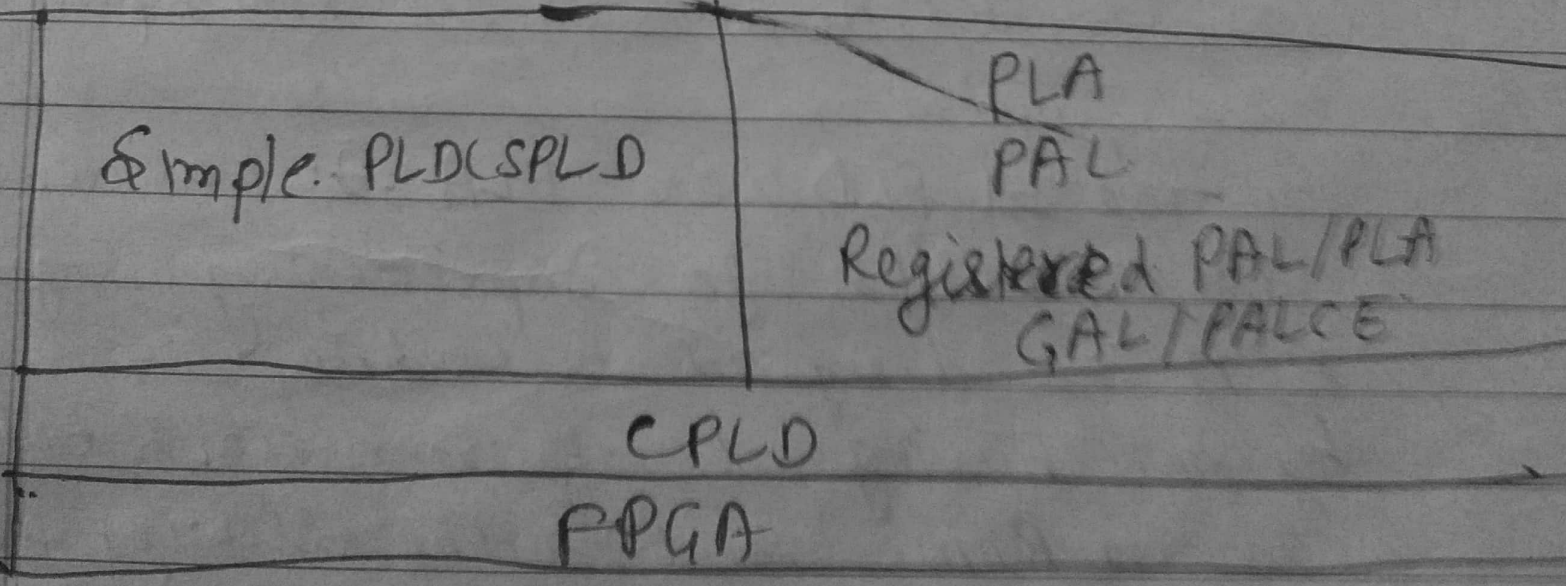 PLA
Simple. PLD(SPLD
PAL
Registered PAL/PLA
GAL/PALCE
CPLD
FPGA